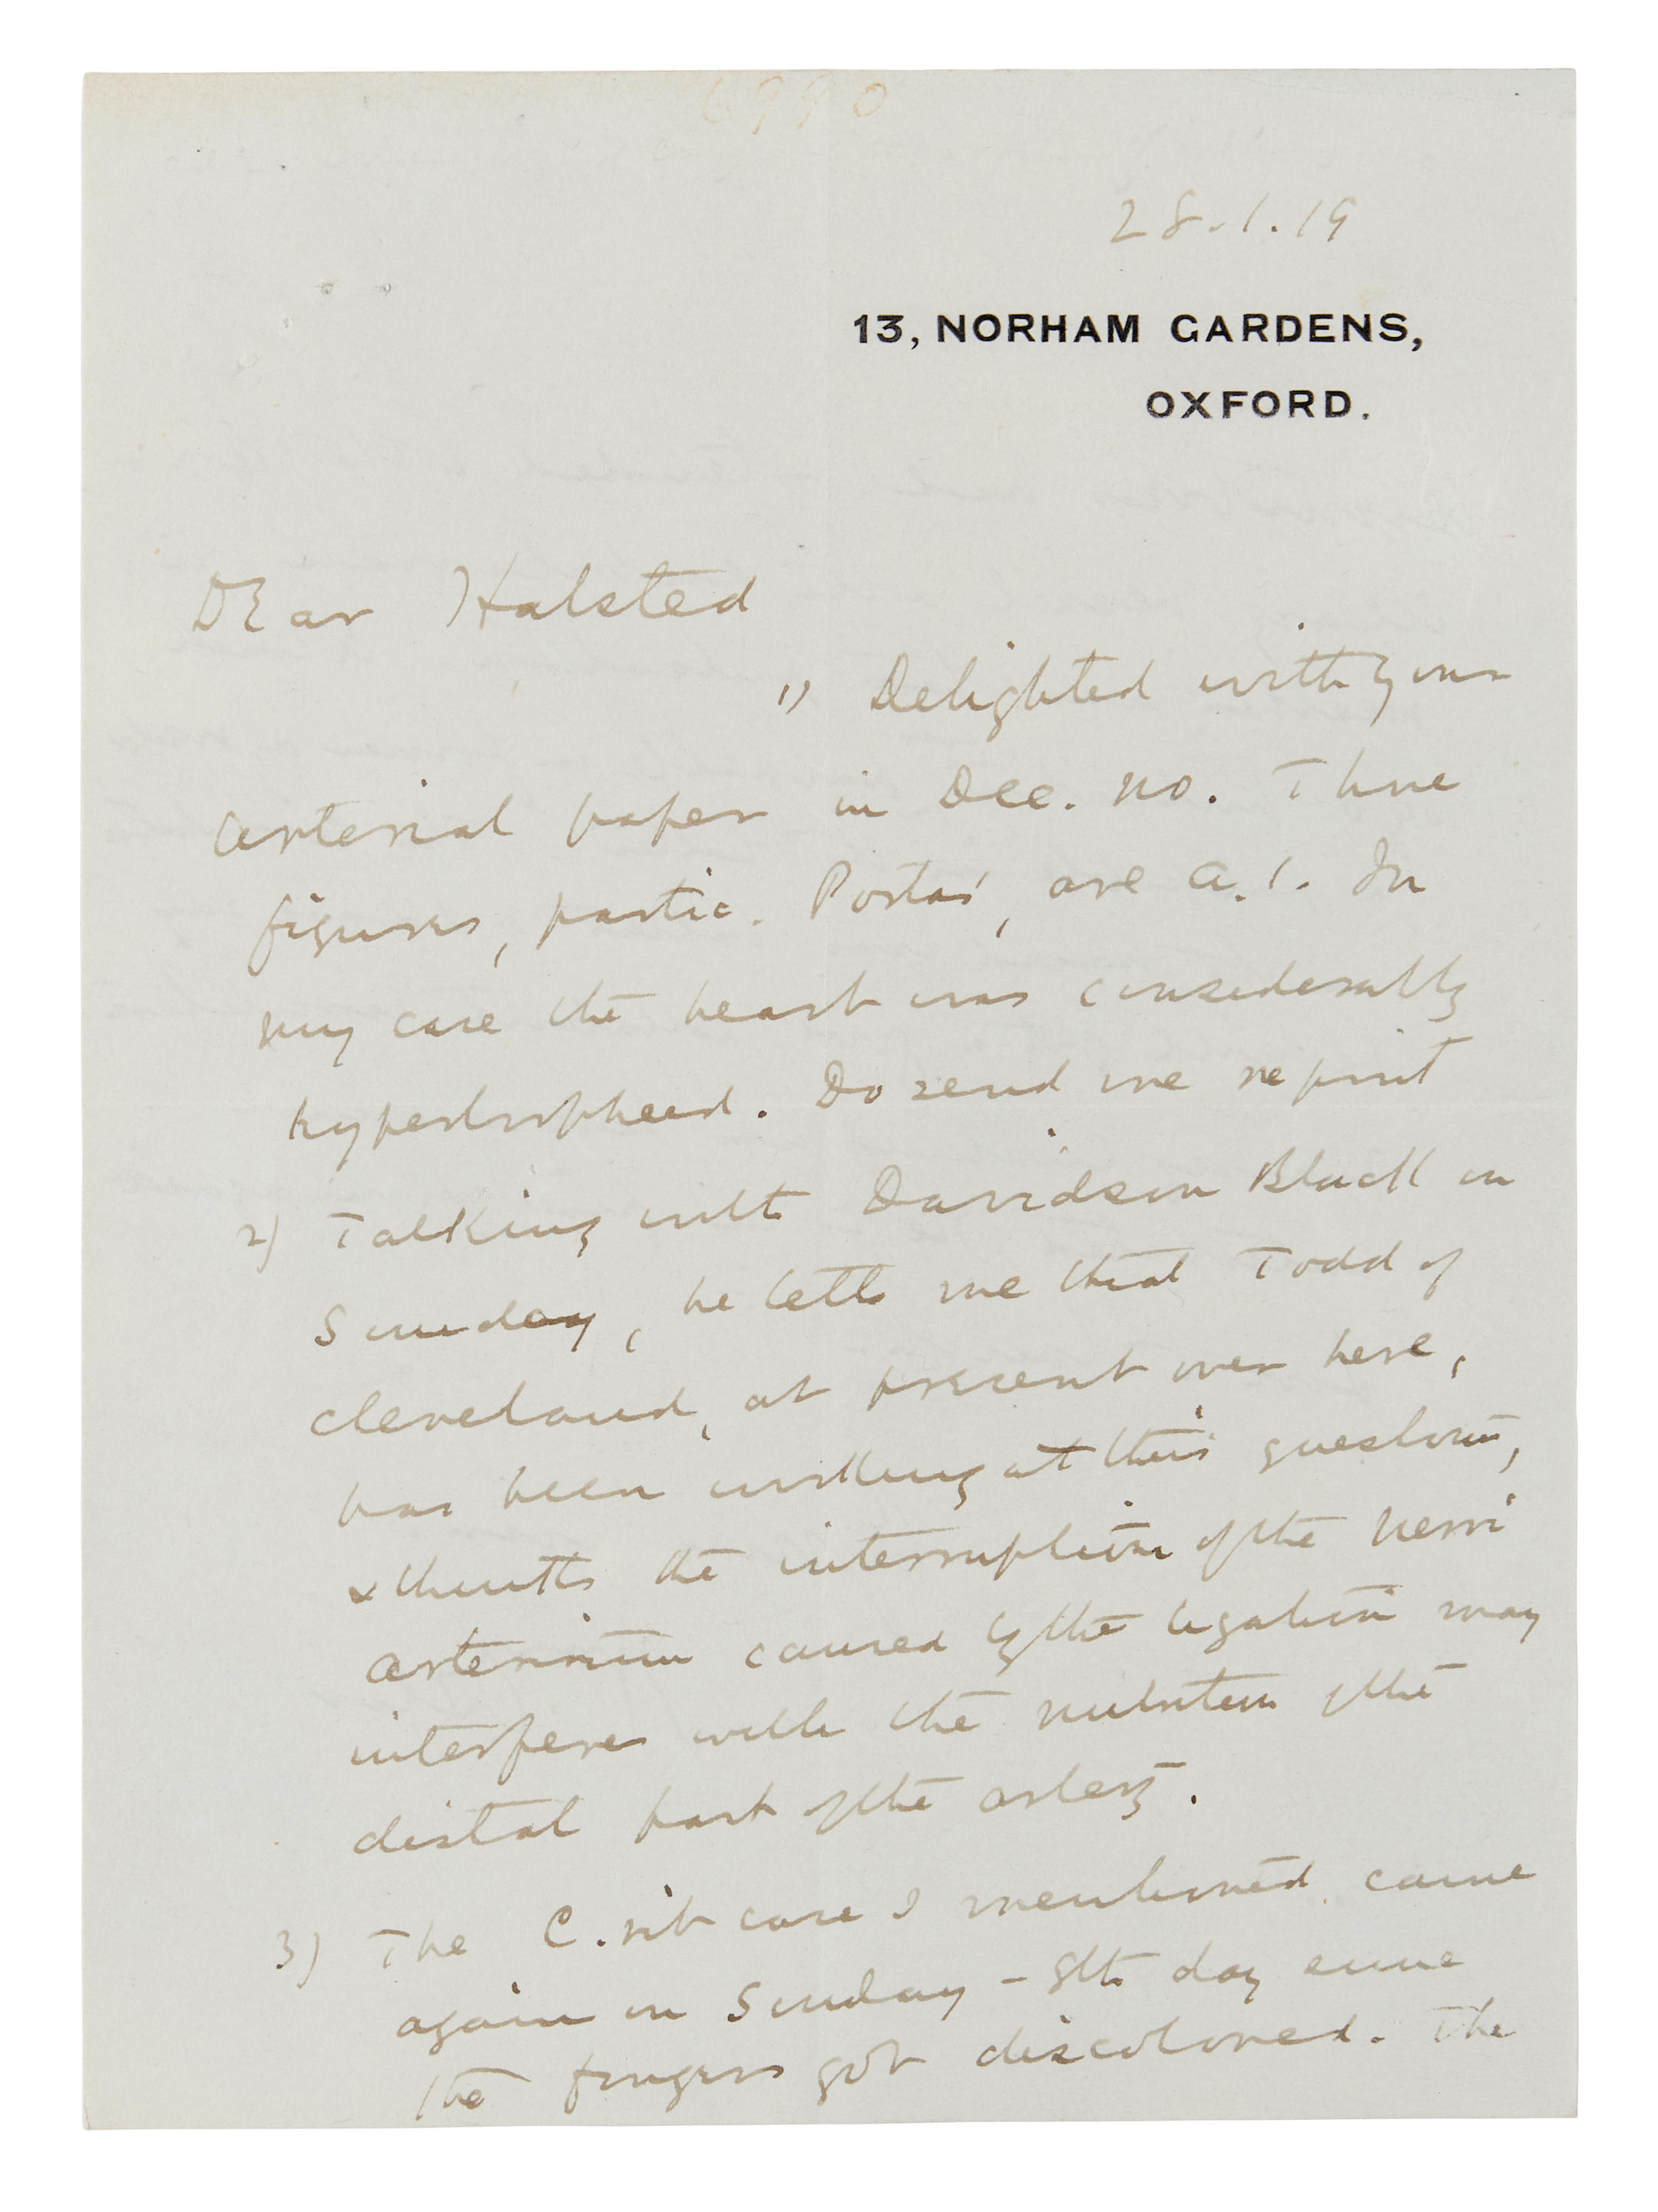 6990
28.1.19
13, NORHAM GARDENS,
OXFORD.
Dear Halsted
1) Delighted with your
arterial paper in Dec. no. Those
figures, partic. Portas', are A.1. In
my case the heart was considerably
hypertrophied. Do send me reprint
2) Talking with Davidson Black on
Sunday, he tells me that Todd of
Cleveland, at present over here,
has been working at this question,
& thinks the interruption of the nervi
arteriorum caused by the ligation may
interfere with the nutrition of the
distal part of the artery.
3) The C. rib case I mentioned came
again on Sunday – 8th day since
the fingers got discolored. The